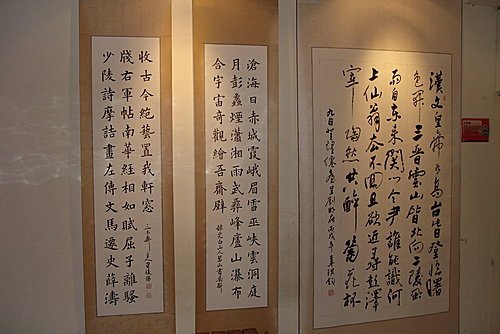 漢文皇帝有高台此日登臨曙
色開三晉雲山皆北向二陵風
雨自東來關門令尹誰能識河
上仙翁去不回且欲近尋彭澤
宰陶然共醉菊花杯
九日登望仙台呈劉明府
滄海日赤城霞峨眉雪巫峽雲洞庭
月彭蠡煙瀟湘雨武彝峰廬山瀑布
合宇宙奇觀繪吾齋壁
少陵詩摩詰畫左傳文馬遷史薛濤
牋右軍帖南華經相如賦屈子離騷
收古今絕藝置我軒窓